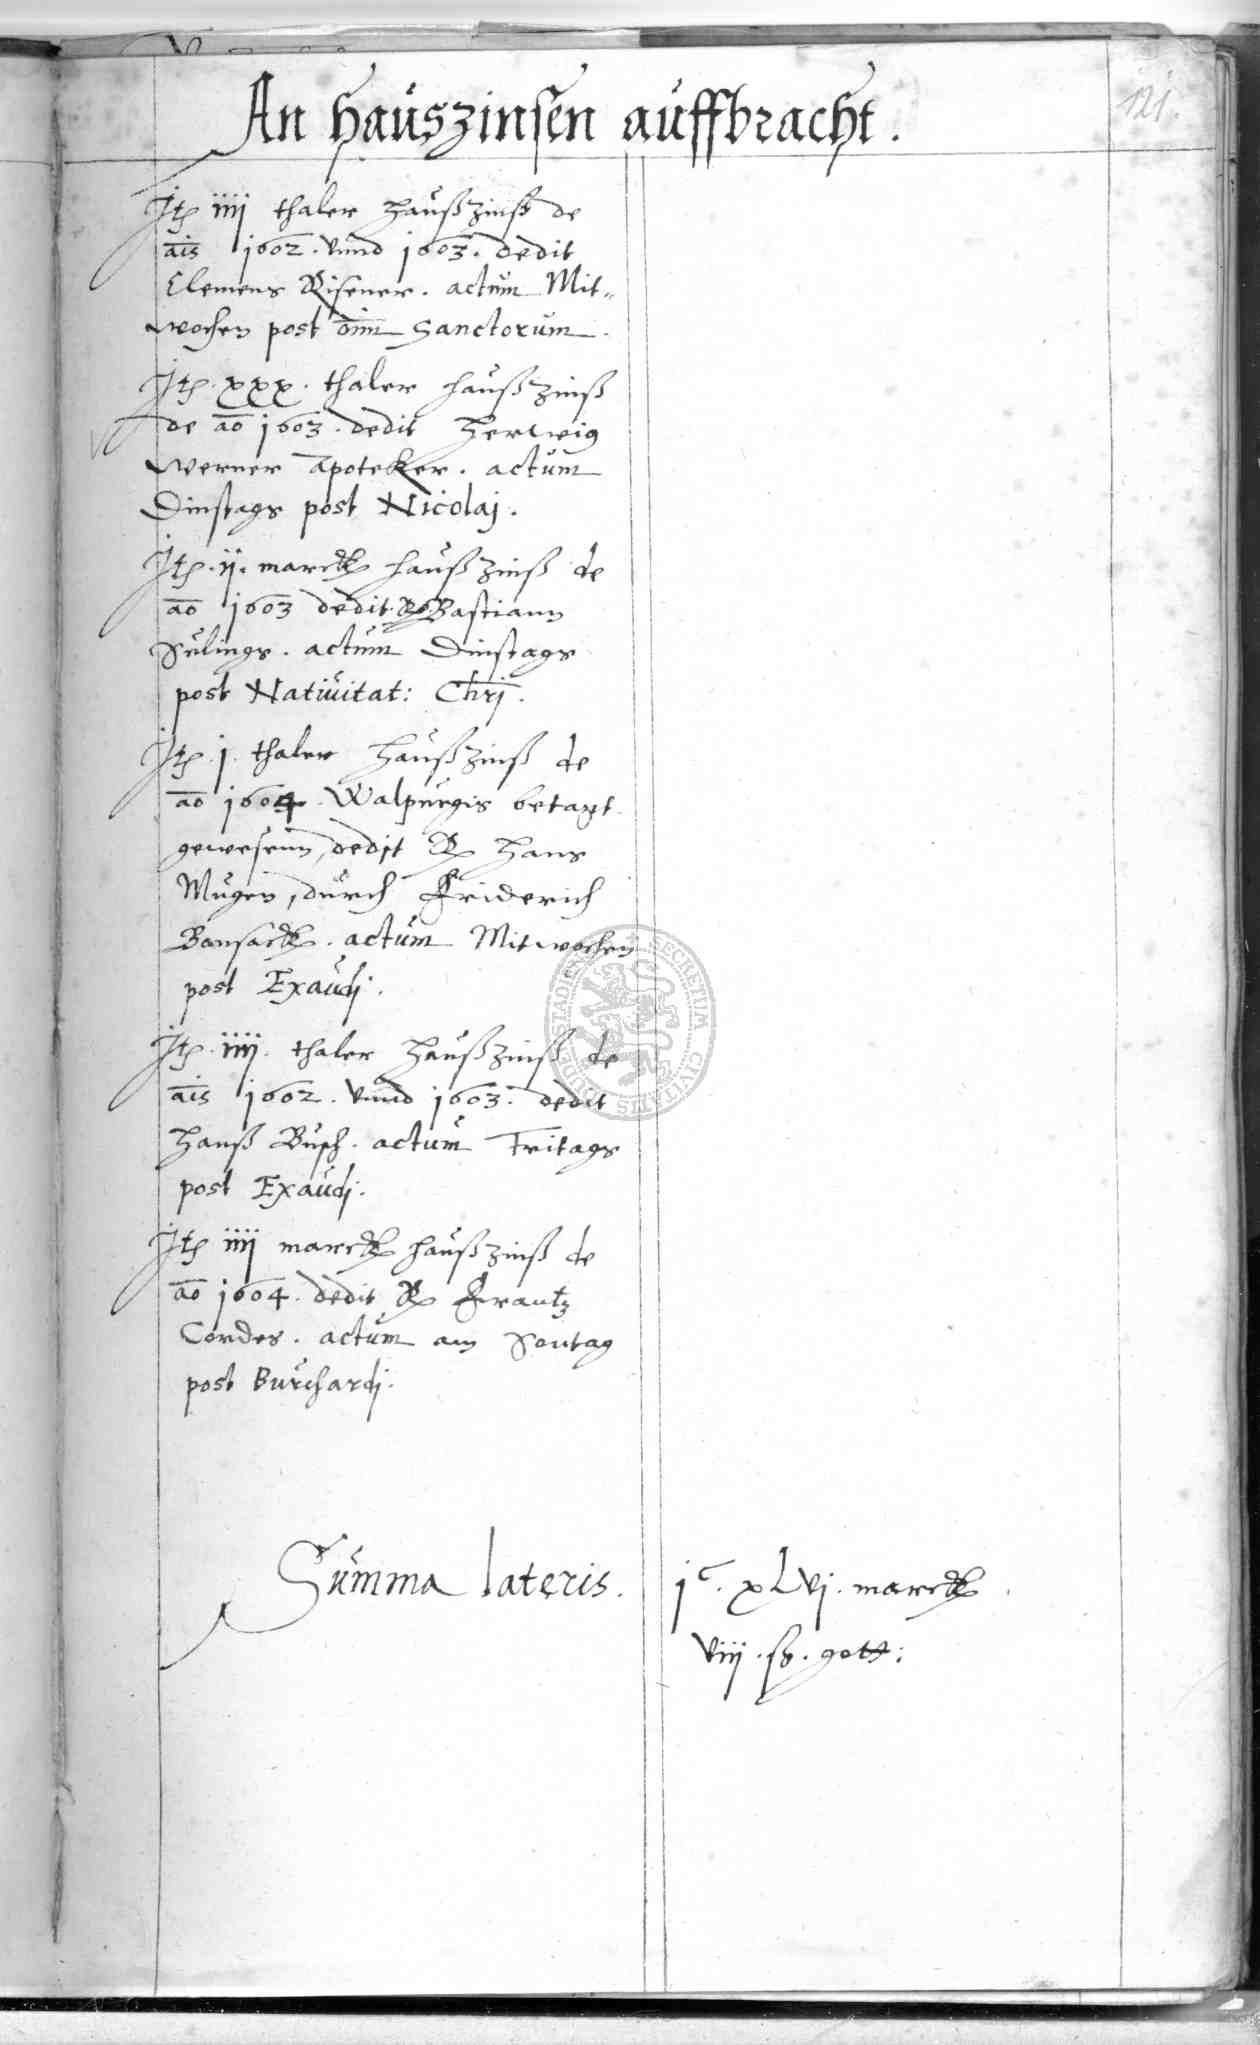 An hauszinsen auffbracht.
121.
Jtem iiij thaler haußzinß de
ais 1602. vnnd 1603. dedit
Clemens Risener. actum Mit=
wochen post oim Sanctorum.
Jtem. xxx. thaler haußzinß
de ao 1603. dedit Herwig
Werner Apoteker. actum
Dinstags post Nicolaj.
Jtem. ij. marck haußzinß de
ao 1603 dedit R Bastiann
Sülings. actum Dinstags
post Nativitat: Chrj.
Jtem. j. thaler haußzinß de
ao 1604. Walpurgis betagt
gewesenn, dedit R Hans
Mugen, durch Friderich
Bansack. actum Mitwochen
post Exaudj.
Jtem. iiij. thaler haußzinß de
ais 1602. vnnd 1603. dedit
Hanß Busch. actum Fritags
post Exaudj.
Jtem iiij marck haußzinß de
ao 1604. dedit R Frantz
Cordes. actum am Sontag
post Burchardj.
Summa lateris. jc. xLvj. marck
viij. ß. gott:
SECRETUM CIVITATIS